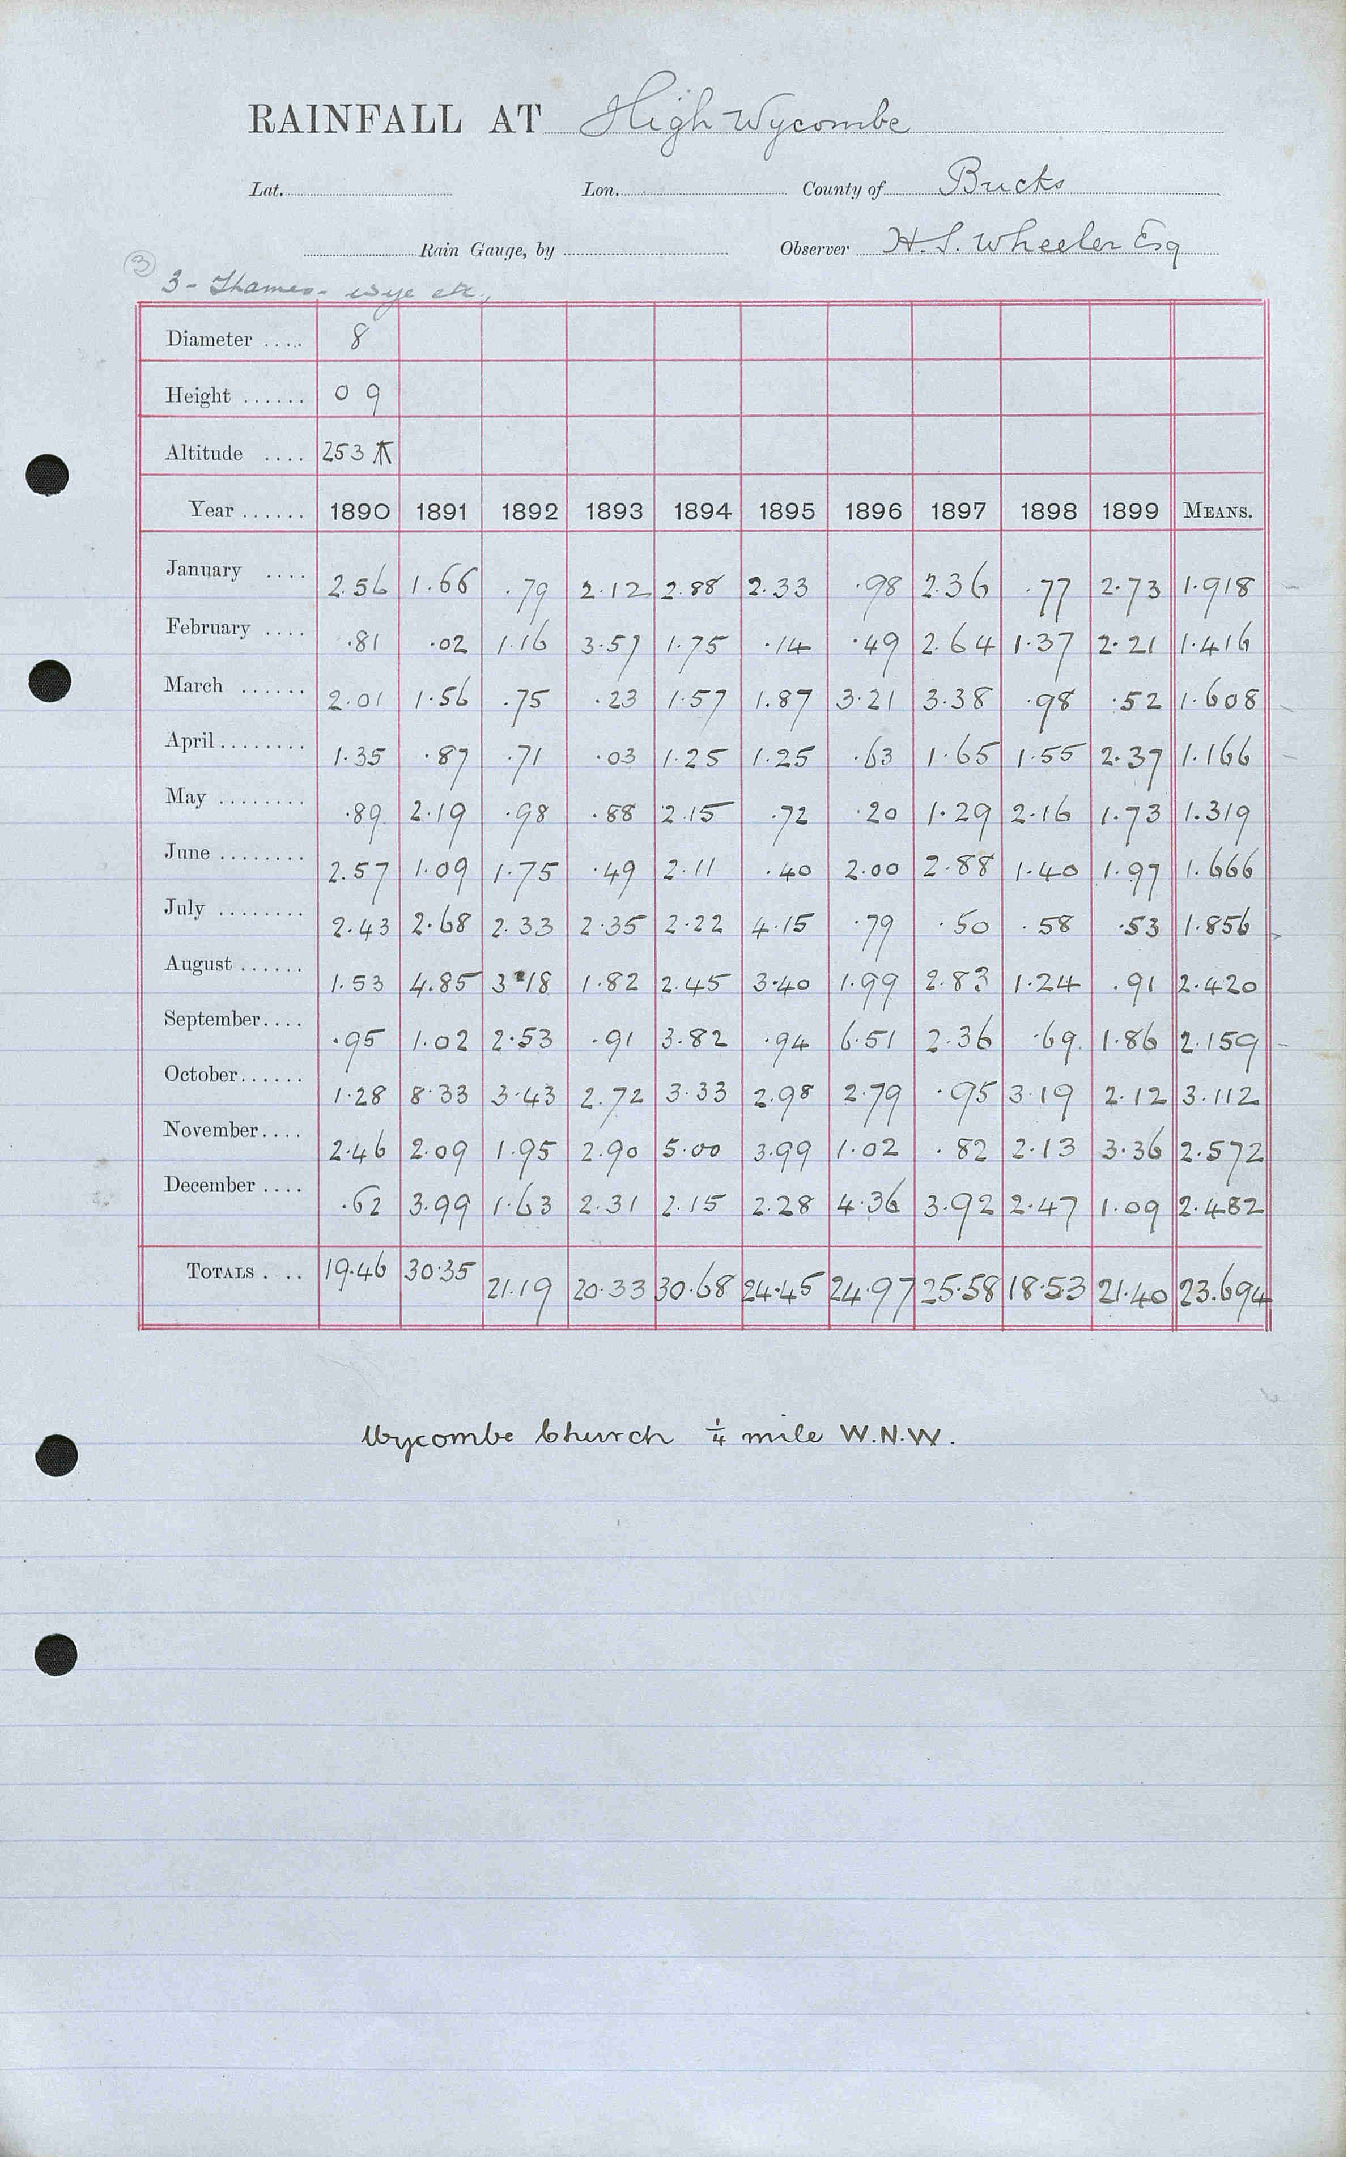 RAINFALL AT High Wycombe
Lat. Lon. County of Bucks
Rain Gauge, by Observer H. S. Wheeler Esq
3
3 - Thames - Wye etc.,
Diameter .... 8
Height ...... 0 9
Altitude .... 253
Year ...... 1890 1891 1892 1893 1894 1895 1896 1897 1898 1899 MEANS.
January .... 2.56 1.66 .79 2.12 2.88 2.33 .98 2.36 .77 2.73 1.918
February .... .81 .02 1.16 3.57 1.75 .14 .49 2.64 1.37 2.21 1.416
March ...... 2.01 1.56 .75 .23 1.57 1.87 3.21 3.38 .98 .52 1.608
April ........ 1.35 .87 .71 .03 1.25 1.25 .63 1.65 1.55 2.37 1.166
May ........ .89 2.19 .98 .88 2.15 .72 .20 1.29 2.16 1.73 1.319
June ........ 2.57 1.09 1.75 .49 2.11 .40 2.00 2.88 1.40 1.97 1.666
July ........ 2.43 2.68 2.33 2.35 2.22 4.15 .79 .50 .58 .53 1.856
August ...... 1.53 4.85 3.18 1.82 2.45 3.40 1.99 2.83 1.24 .91 2.420
September .... .95 1.02 2.53 .91 3.82 .94 6.51 2.36 .69 1.86 2.159
October ...... 1.28 8.33 3.43 2.72 3.33 2.98 2.79 .95 3.19 2.12 3.112
November .... 2.46 2.09 1.95 2.90 5.00 3.99 1.02 .82 2.13 3.36 2.572
December .... .62 3.99 1.63 2.31 2.15 2.28 4.36 3.92 2.47 1.09 2.482
TOTALS . .. 19.46 30.35 21.19 20.33 30.68 24.45 24.97 25.58 18.53 21.40 23.694
Wycombe Church ¼ mile W.N.W.